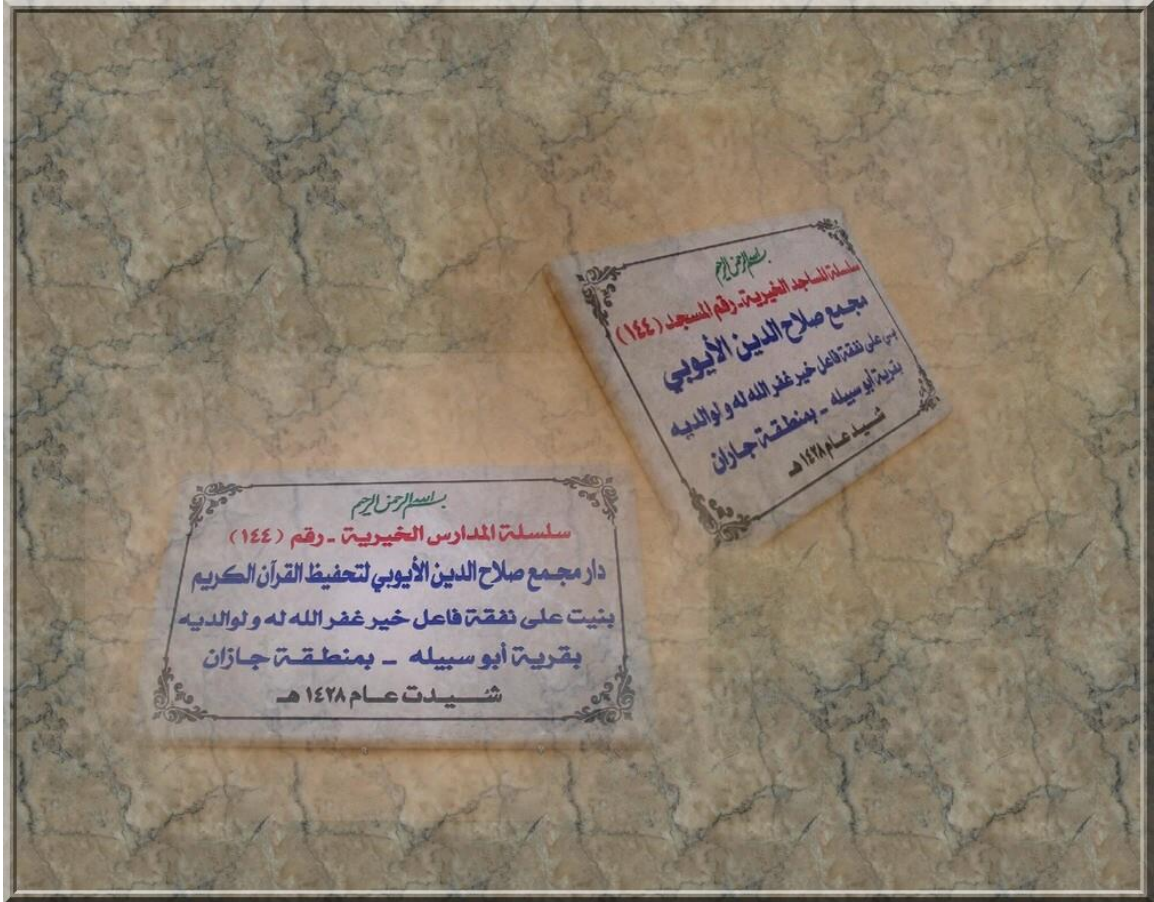 بسم الله الرحمن الرحيم
سلسلة المساجد الخيرية - رقم المسجد (١٤٤)
مجمع صلاح الدين الأيوبي
بني على نفقة فاعل خير غفر الله له ولوالديه
بقرية أبو سبيله - بمنطقة جازان
شيد عام ١٤٢٨ هـ
بسم الله الرحمن الرحيم
سلسلة المدارس الخيرية - رقم (١٤٤)
دار مجمع صلاح الدين الأيوبي لتحفيظ القرآن الكريم
بنيت على نفقة فاعل خير غفر الله له ولوالديه
بقرية أبو سبيله - بمنطقة جازان
شيدت عام ١٤٢٨ هـ